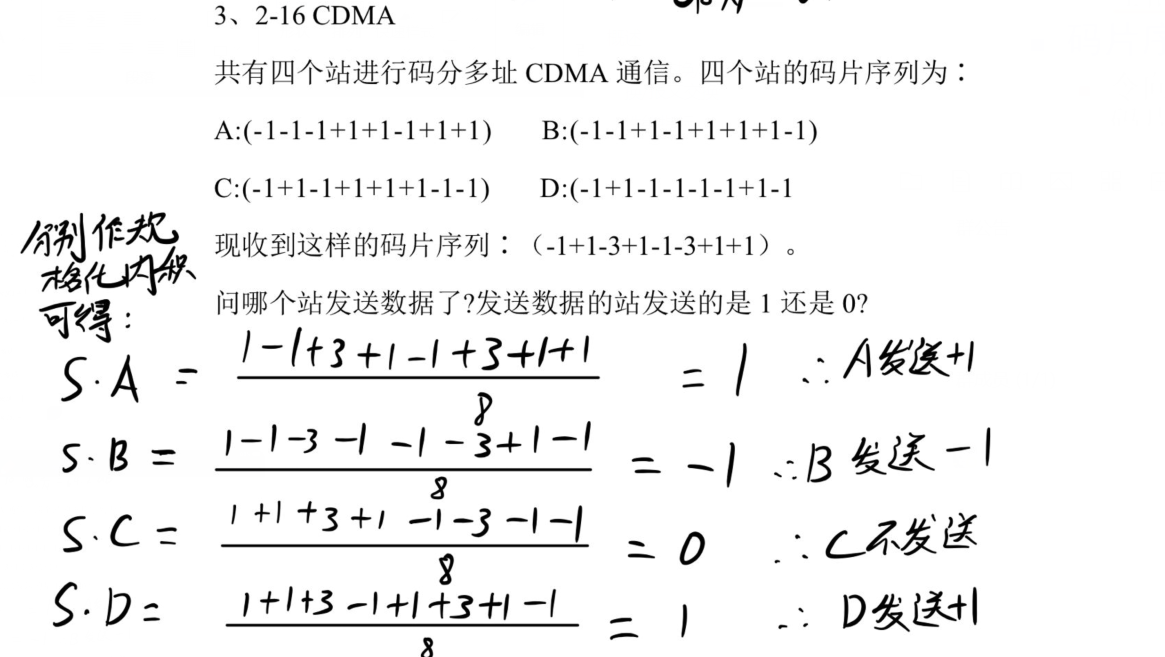 3、2-16 CDMA
共有四个站进行码分多址 CDMA 通信。四个站的码片序列为：
A:(-1-1-1+1+1-1+1+1) B:(-1-1+1-1+1+1+1-1)
C:(-1+1-1+1+1+1-1-1) D:(-1+1-1-1-1-1+1-1
现收到这样的码片序列：（-1+1-3+1-1-3+1+1）。
问哪个站发送数据了?发送数据的站发送的是 1 还是 0?
分别作规
格化内积
可得：
S·A = 1-1+3+1-1+3+1+1 / 8 = 1 ∴A发送+1
S·B = 1-1-3-1-1-3+1-1 / 8 = -1 ∴B发送-1
S·C = 1+1+3+1-1-3-1-1 / 8 = 0 ∴C不发送
S·D = 1+1+3-1+1+3+1-1 / 8 = 1 ∴D发送+1